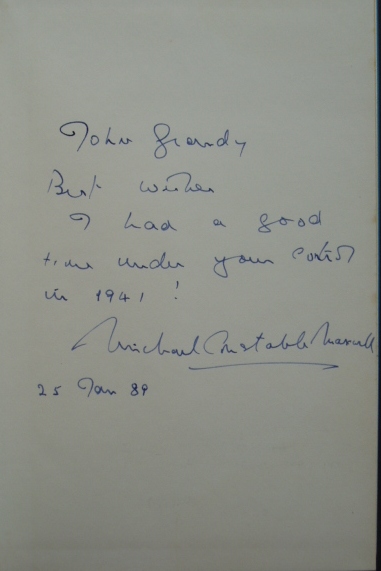 John Grandy
Best wishes
I had a good
time under your control
in 1941 !
Michael Constable Maxwell
25 Jan 89